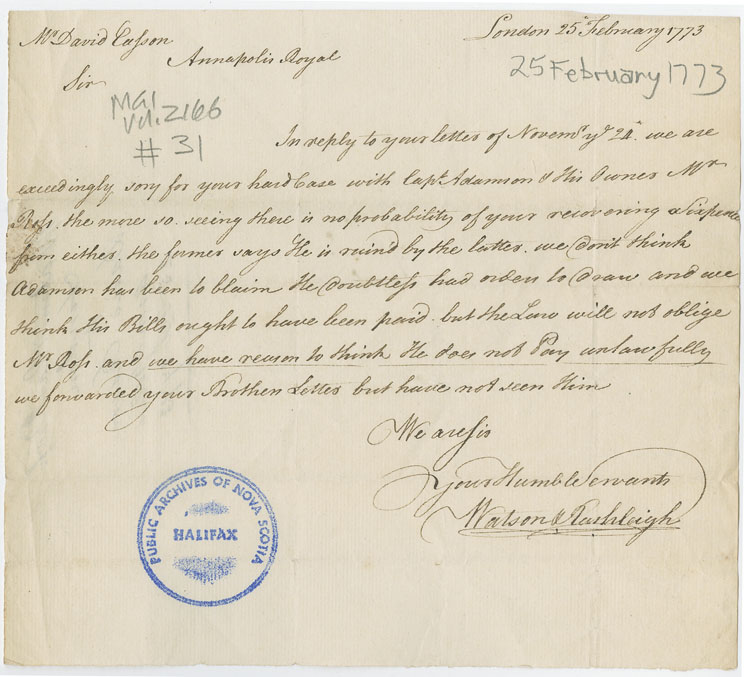 London 25 February 1773
Mr David Easson
Annapolis Royal
25 February 1773
Sir
MG1
Vol. 2166
# 31
In reply to your letter of Novemr ye 24 we are
exceedingly sory for your hard Case with Capt Adamson & His Owner Mr
Ross. the more so. seeing there is no probability of your recovering a Sixpence
from either. the former says He is ruind by the latter. we don't think
Adamson has been to blaim He doubtless had orders to Draw and we
think His Bills ought to have been paid. but the Law will not oblige
Mr Ross. and we have reason to think He does not Pay unlawfully
we forwarded your Brothers Letter but have not seen Him
We are Sir
Your Humble Servants
Watson & Rashleigh
PUBLIC ARCHIVES OF NOVA SCOTIA
HALIFAX